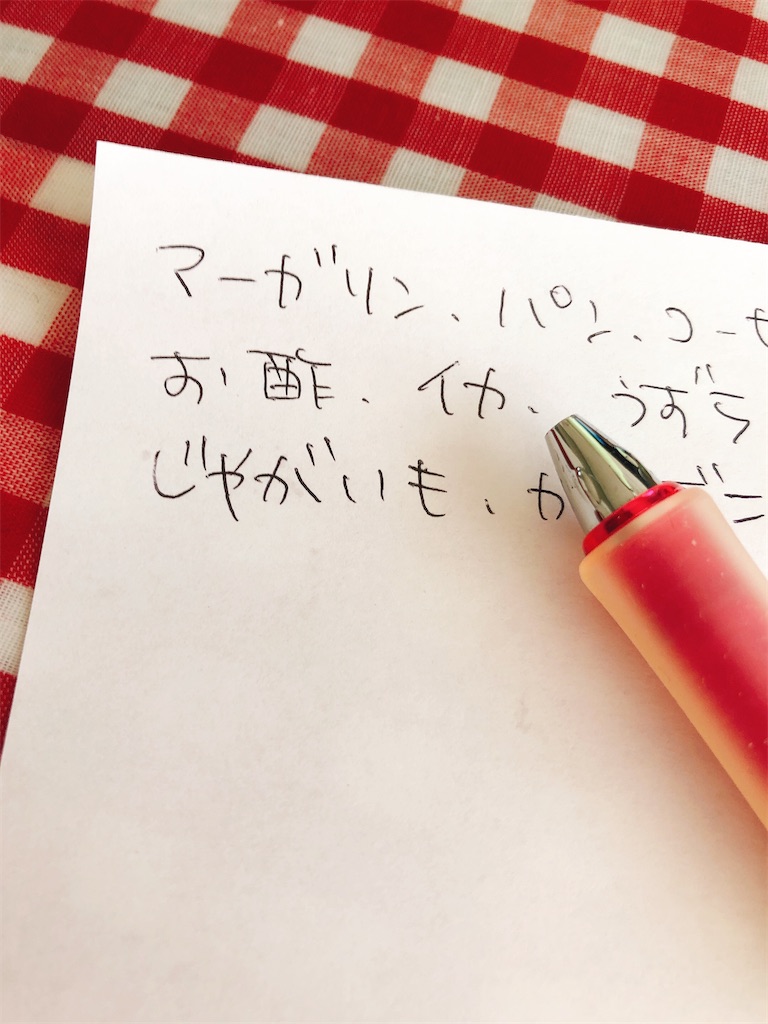 マーガリン、パン、コーセ
お酢、イカ、うずら
じゃがいも、カ